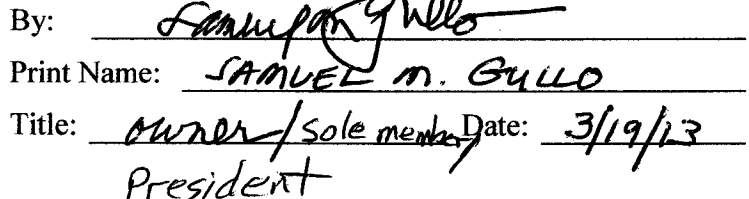 By: Samuel M Gullo
Print Name: SAMUEL M. GULLO
Title: owner/sole member/ Date: 3/19/13
President